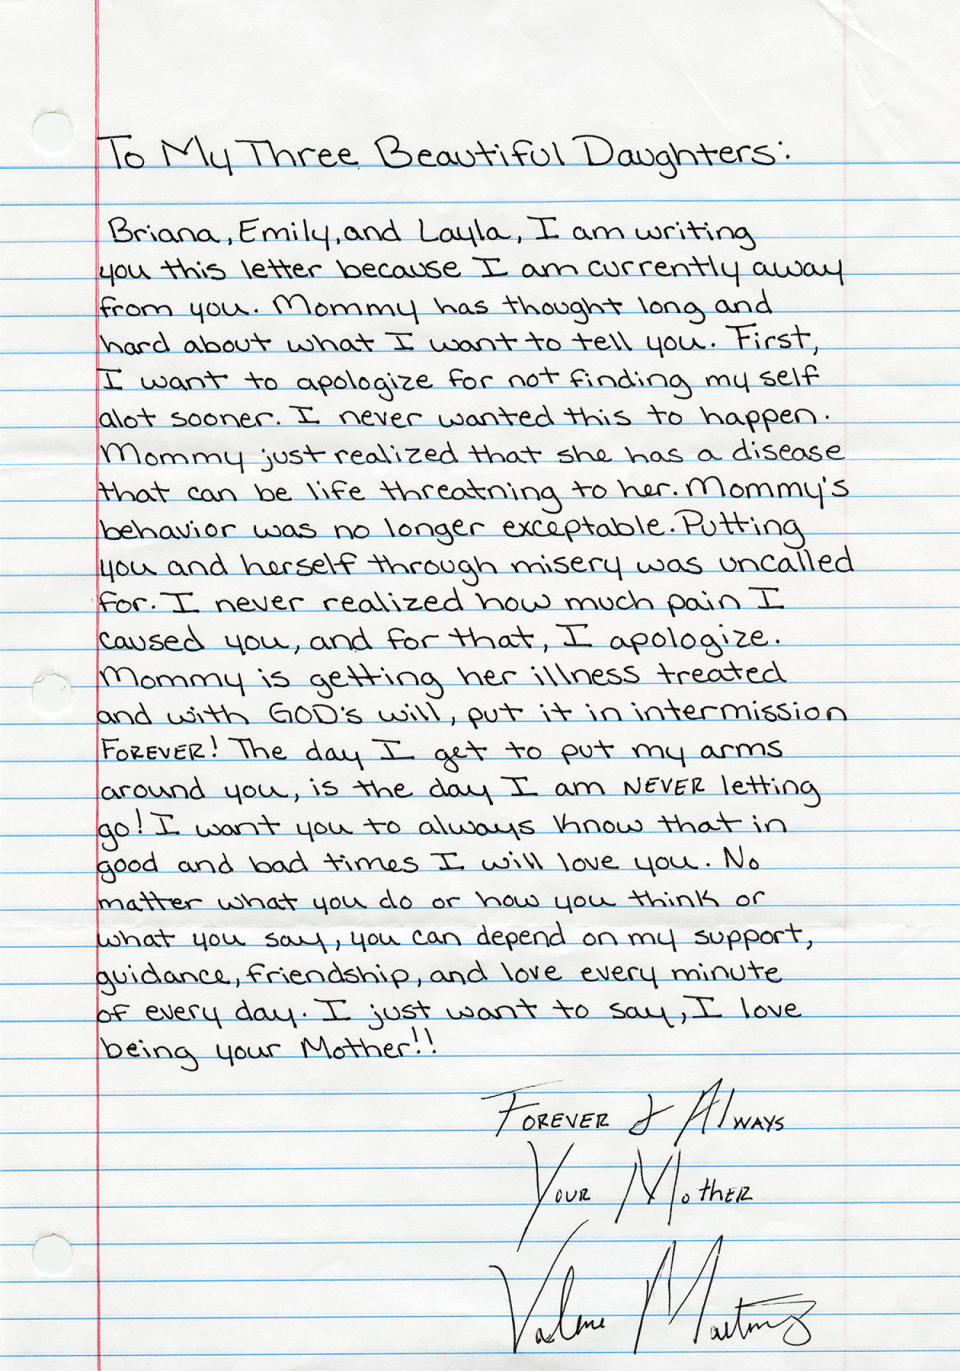 To My Three Beautiful Daughters:
Briana, Emily, and Layla, I am writing
you this letter because I am currently away
from you. Mommy has thought long and
hard about what I want to tell you. First,
I want to apologize for not finding my self
alot sooner. I never wanted this to happen.
Mommy just realized that she has a disease
that can be life threatning to her. Mommy's
behavior was no longer exceptable. Putting
you and herself through misery was uncalled
for. I never realized how much pain I
caused you, and for that, I apologize.
Mommy is getting her illness treated
and with GOD's will, put it in intermission
FOREVER! The day I get to put my arms
around you, is the day I am NEVER letting
go! I want you to always know that in
good and bad times I will love you. No
matter what you do or how you think or
what you say, you can depend on my support,
guidance, friendship, and love every minute
of every day. I just want to say, I love
being your Mother!!
FOREVER & Always
Your Mother
Valerie Martinez